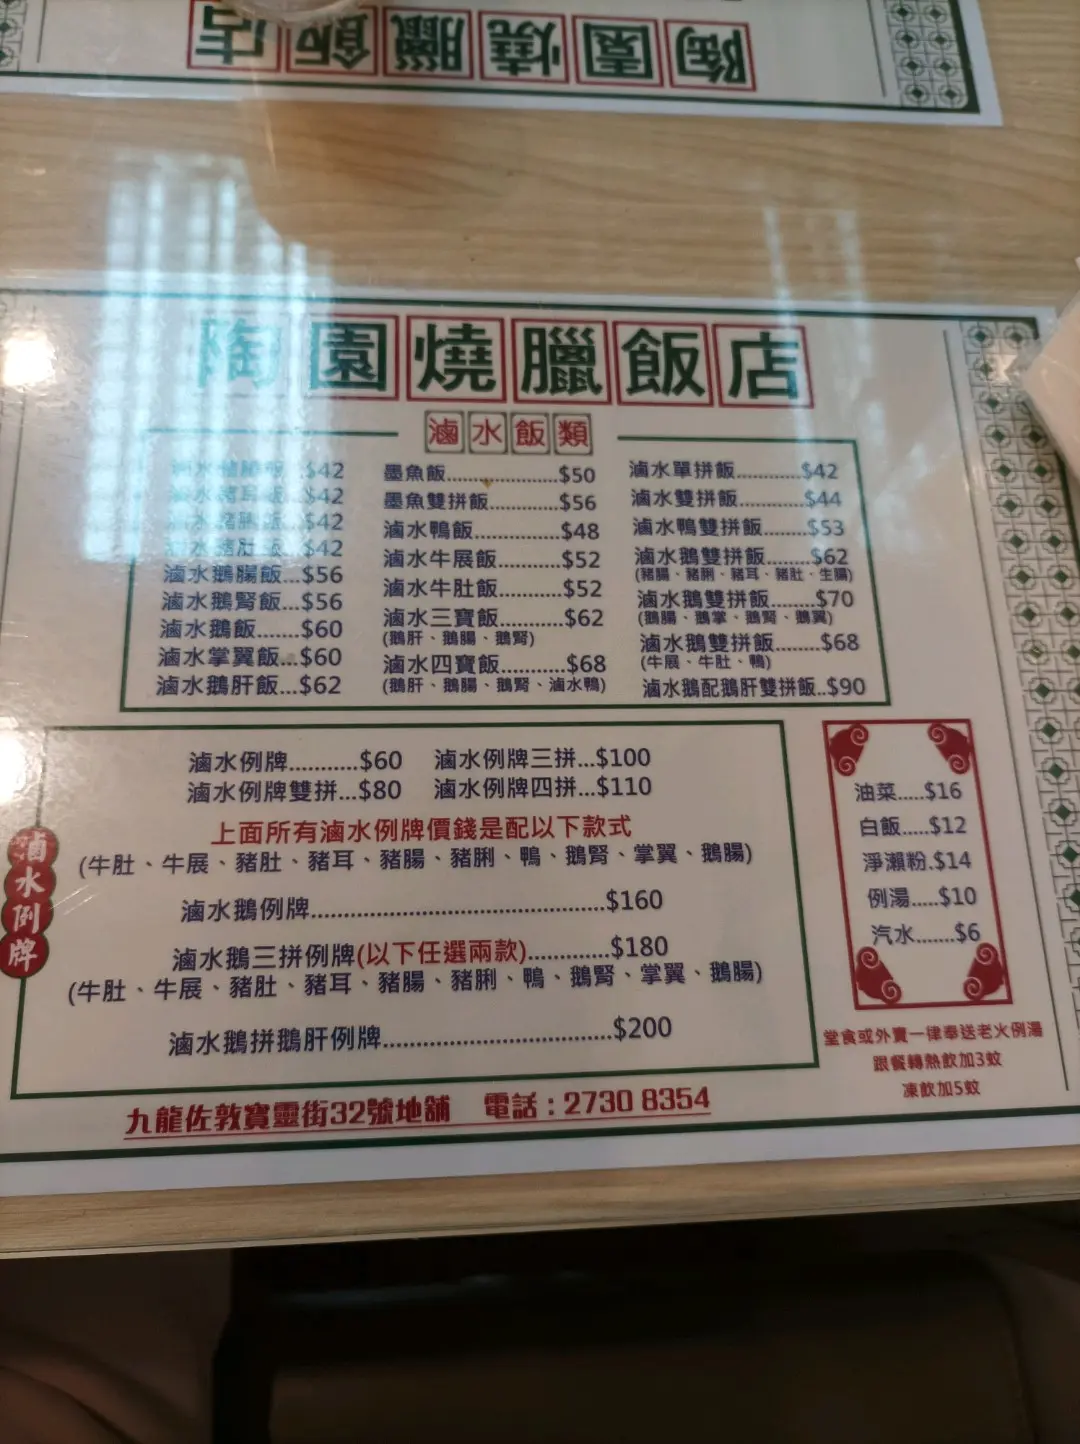 陶園燒臘飯店
陶園燒臘飯店
滷水飯類
滷水豬腸飯...$42
滷水豬耳飯...$42
滷水豬脷飯...$42
滷水豬肚飯...$42
滷水鵝腸飯...$56
滷水鵝腎飯...$56
滷水鵝飯.......$60
滷水掌翼飯...$60
滷水鵝肝飯...$62
墨魚飯......................$50
墨魚雙拼飯..............$56
滷水鴨飯.................$48
滷水牛展飯.............$52
滷水牛肚飯.............$52
滷水三寶飯.............$62
(鵝肝、鵝腸、鵝腎)
滷水四寶飯............$68
(鵝肝、鵝腸、鵝腎、滷水鴨)
滷水單拼飯.............$42
滷水雙拼飯.............$44
滷水鴨雙拼飯.........$53
滷水鵝雙拼飯.........$62
(豬腸、豬脷、豬耳、豬肚、生腸)
滷水鵝雙拼飯.........$70
(鵝腸、鵝掌、鵝腎、鵝翼)
滷水鵝雙拼飯.........$68
(牛展、牛肚、鴨)
滷水鵝配鵝肝雙拼飯..$90
滷水例牌
滷水例牌...........$60
滷水例牌三拼...$100
滷水例牌雙拼...$80
滷水例牌四拼...$110
上面所有滷水例牌價錢是配以下款式
(牛肚、牛展、豬肚、豬耳、豬腸、豬脷、鴨、鵝腎、掌翼、鵝腸)
滷水鵝例牌.............................................$160
滷水鵝三拼例牌(以下任選兩款).............$180
(牛肚、牛展、豬肚、豬耳、豬腸、豬脷、鴨、鵝腎、掌翼、鵝腸)
滷水鵝拼鵝肝例牌...................................$200
油菜.....$16
白飯.....$12
淨瀨粉.$14
例湯.....$10
汽水.......$6
堂食或外賣一律奉送老火例湯
跟餐轉熱飲加3蚊
凍飲加5蚊
九龍佐敦寶靈街32號地舖 電話：2730 8354